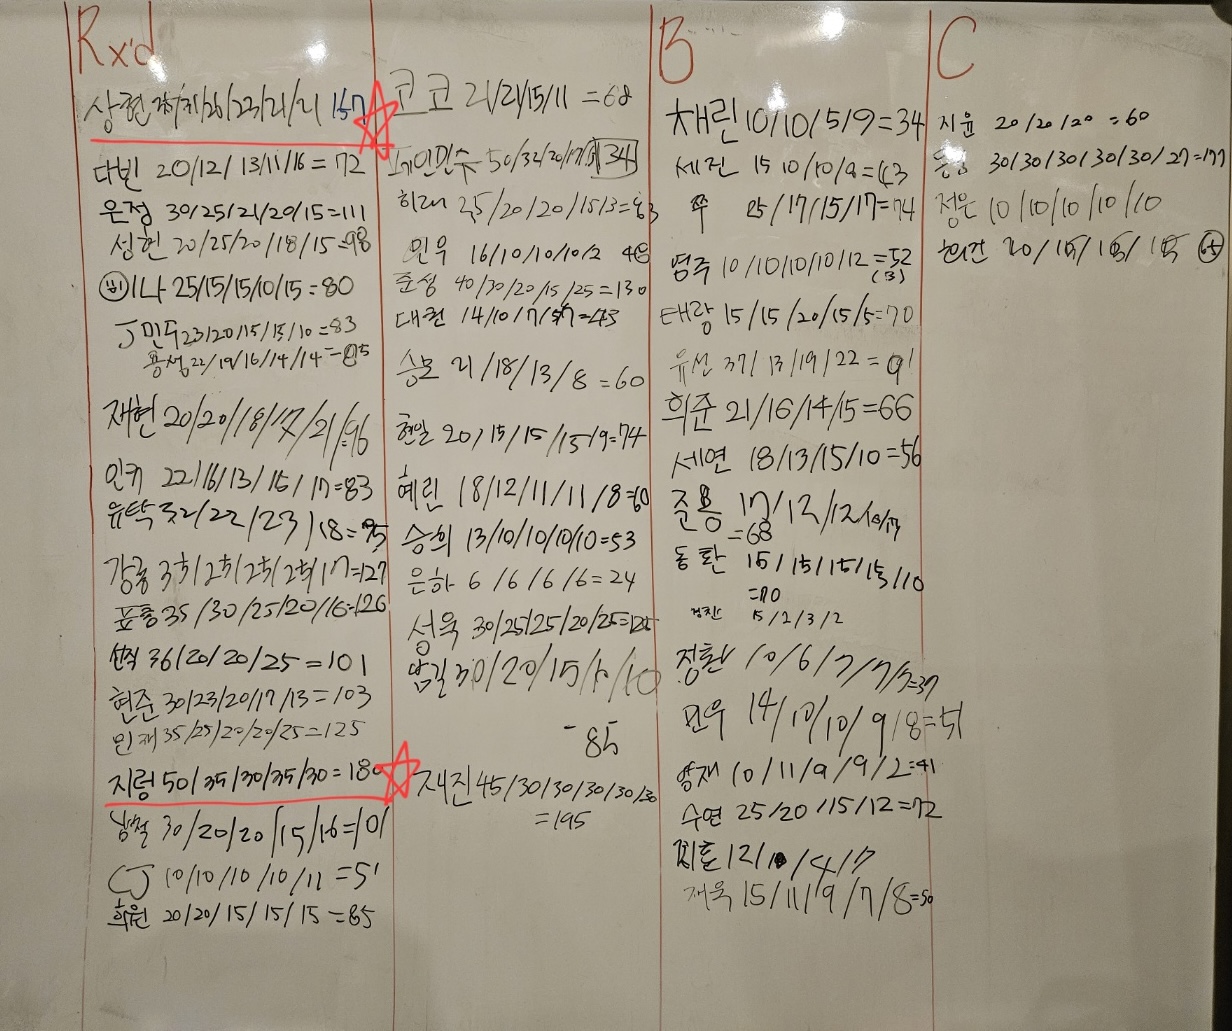 Rx'd
상현 /26/23/21/21 157
다빈 20/12/13/11/16=72
은정 30/25/21/20/15=111
성현 20/25/20/18/15=98
이나 25/15/15/10/15=80
J민수 23/20/15/15/10=83
용성 22/19/16/14/14=85
재현 20/20/18/17/21=96
인규 22/16/13/15/17=83
유탁 32/22/23/18=95
강룡 =127
표룡 35/30/25/20/16=126
선직 36/20/20/25=101
현준 30/23/20/17/13=103
민재 35/25/20/20/25=125
지렁 50/35/30/35/30=180
남철 30/20/20/15/16=101
CJ 10/10/10/10/11=51
희원 20/20/15/15/15=85
코코 21/21/15/11=68
제인민수 50/32/20/17/ 134
희래 25/20/20/15/3=83
민우 16/10/10/10/2 48
준성 40/30/20/15/25=130
대권 14/10/7/ =43
승모 21/18/13/8=60
현일 20/15/15/15/9=74
혜린 18/12/11/11/8=60
승희 13/10/10/10/10=53
은하 6/6/6/6=24
성욱 30/25/25/20/25=125
30/20/15/10/10
-85
재진 45/30/30/30/30/30
=195
B
채린 10/10/5/9=34
세진 15 10/10/9=43
쭈 25/17/15/17=74
영주 10/10/10/10/12=52
(B)
태랑 15/15/20/15/5=70
유선 37/13/19/22=91
희준 21/16/14/15=66
세연 18/13/15/10=56
준용 17/12/12/10/17
=68
동환 15/15/15/15/10
=70
15/2/3/2
정환 10/6/7/7/7=37
민우 14/10/10/9/8=51
양재 10/11/9/9/2=41
수연 25/20/15/12=72
찌훈 12/ /4/7
재욱 15/11/9/7/8=50
C
지윤 20/20/20=60
30/30/30/30/30/27=177
정은 10/10/10/10/10
20/15/15/15 65